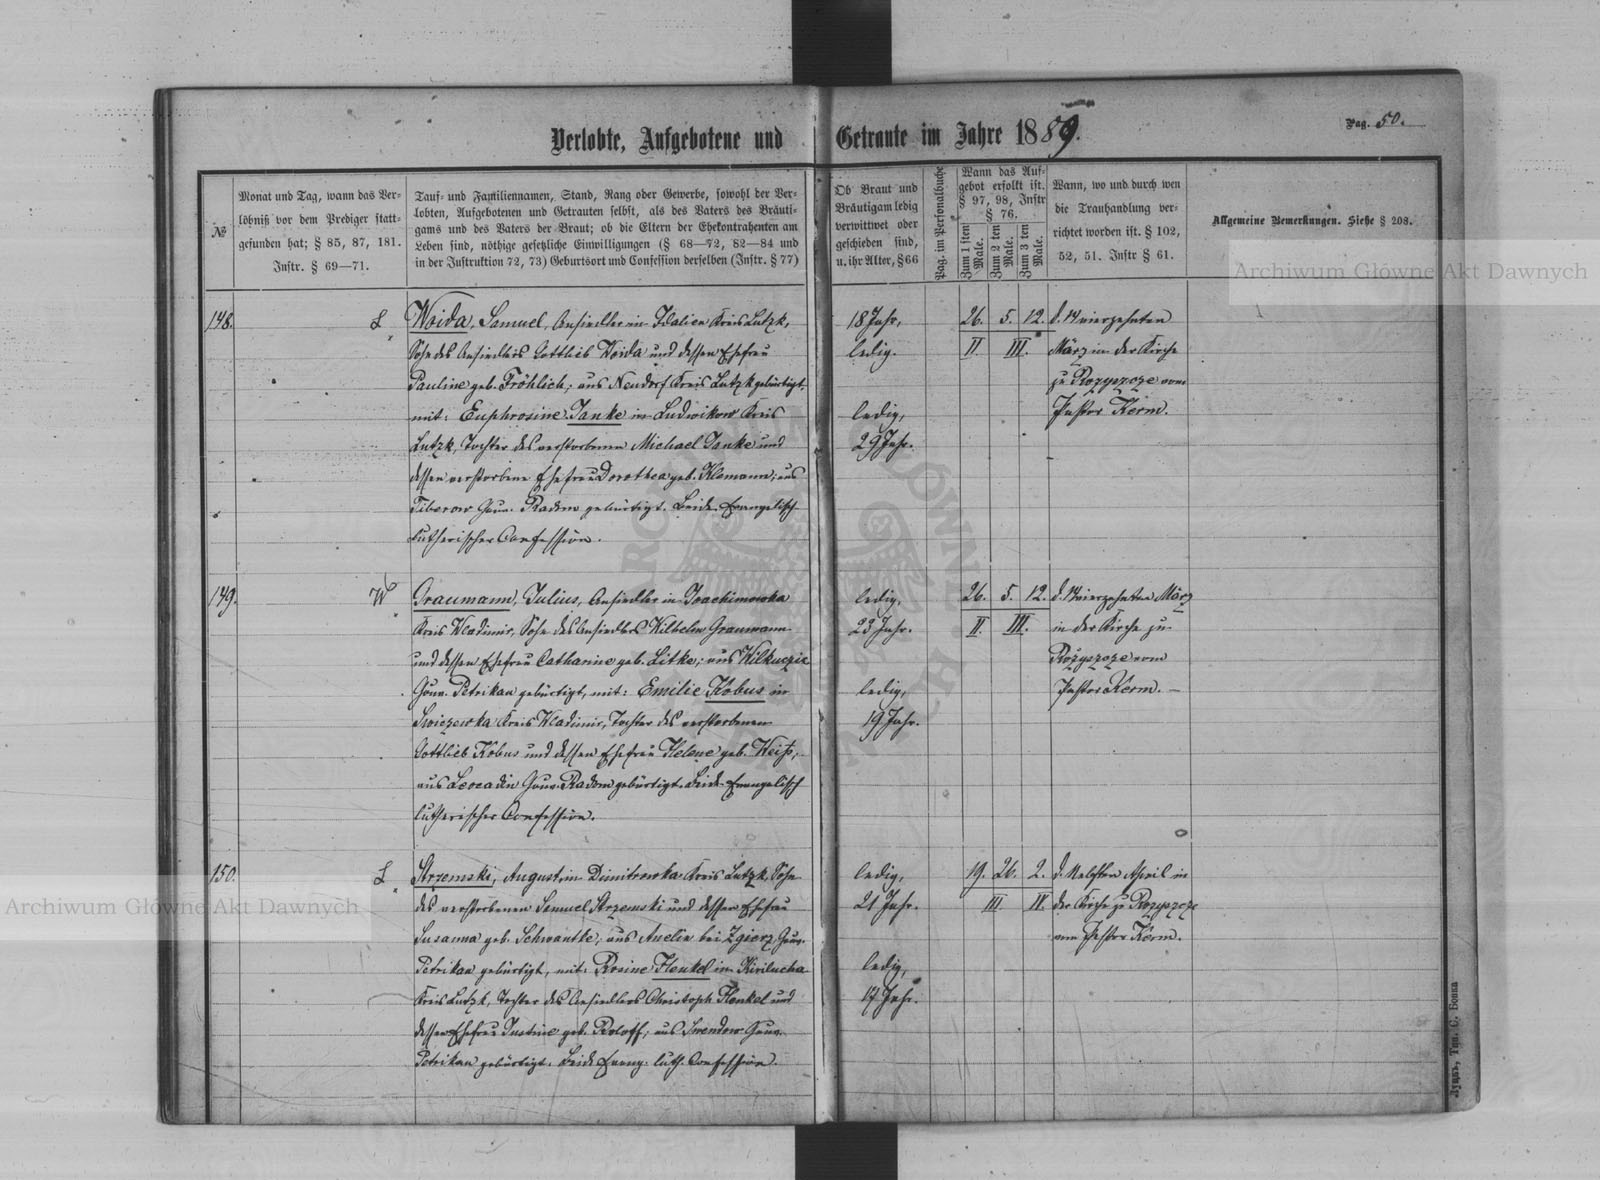 Verlobte, Aufgebotene und Getraute im Jahre 1889.
Pag. 50.
№
Monat und Tag, wann das Ver-
löbniß vor dem Prediger statt-
gefunden hat; § 85, 87, 181.
Instr. § 69—71.
Tauf- und Familiennamen, Stand, Rang oder Gewerbe, sowohl der Ver-
lobten, Aufgebotenen und Getrauten selbst, als des Vaters des Bräuti-
gams und des Vaters der Braut; ob die Eltern der Ehekontrahenten am
Leben sind, nöthige gesetzliche Einwilligungen (§ 68—72, 82—84 und
in der Instruktion 72, 73) Geburtsort und Confession derselben (Instr. § 77)
Ob Braut und
Bräutigam ledig
verwittwet oder
geschieden sind,
u. ihr Alter, § 66
Pag. im Personalbuche
Wann das Auf-
gebot erfolgt ist.
§ 97, 98, Instr
§ 76.
Zum 1 sten Male.
Zum 2 ten Male.
Zum 3 ten Male.
Wann, wo und durch wen
die Trauhandlung ver-
richtet worden ist. § 102,
52, 51. Instr § 61.
Allgemeine Bemerkungen. Siehe § 208.
148.
L
Woida, Samuel, Ansiedler in Idalien Kreis Lutzk,
Sohn des Ansiedlers Gottlieb Woida und dessen Ehefrau
Pauline geb. Fröhlich; aus Neudorf Kreis Lutzk gebürtigt,
mit: Euphrosine Janke in Ludwikow Kreis
Lutzk, Tochter des verstorbenen Michael Janke und
dessen verstorbene Ehefrau Dorothea geb. Klemann; aus
Tiberow Gouv. Radom gebürtigt. Beide Evangelisch-
Lutherischer Confession.
18 Jahr,
ledig.
ledig,
29 Jahr.
26. 5. 12.
II III.
d. 14 vierzehnten
März in der Kirche
zu Rozyszcze vom
Pastor Kerm.
149.
W
Graumann, Julius, Ansiedler in Joachimowka
Kreis Wladimir, Sohn des Ansiedlers Wilhelm Graumann
und dessen Ehefrau Catharine geb. Litke; aus
Gouv. Petrikau gebürtigt, mit: Emilie Kobus in
Kreis Wladimir, Tochter des verstorbenen
Gottlieb Kobus und dessen Ehefrau Helene geb. Weiß;
aus Leocadin Gouv. Radom gebürtigt. Beide Evangelisch
lutherischer Confession.
ledig,
23 Jahr.
ledig,
19 Jahr.
26. 5. 12.
II. III.
d. 14 vierzehnten März
in der Kirche zu
Rozyszcze vom
Pastor Kerm. —
150.
L
Strzemski, August in Dimitrowka Kreis Lutzk, Sohn
des verstorbenen Samuel Strzemski und dessen Ehefrau
Susanna geb. Schwantke, aus Anelin bei Zgierz Gouv.
Petrikau gebürtigt, mit: Rosine Henkel in Kirilucha
Kreis Lutzk, Tochter des Ansiedlers Christoph Henkel und
dessen Ehefrau Justine geb. Roloff; aus Gouv.
Petrikau gebürtigt. Beide Evang. luth. Confession.
ledig,
21 Jahr.
ledig,
17 Jahr.
19. 26. 2.
III IV.
April in
der Kirche zu Rozyszcze
vom Pastor Kerm.
Archiwum Główne Akt Dawnych
Archiwum Główne Akt Dawnych